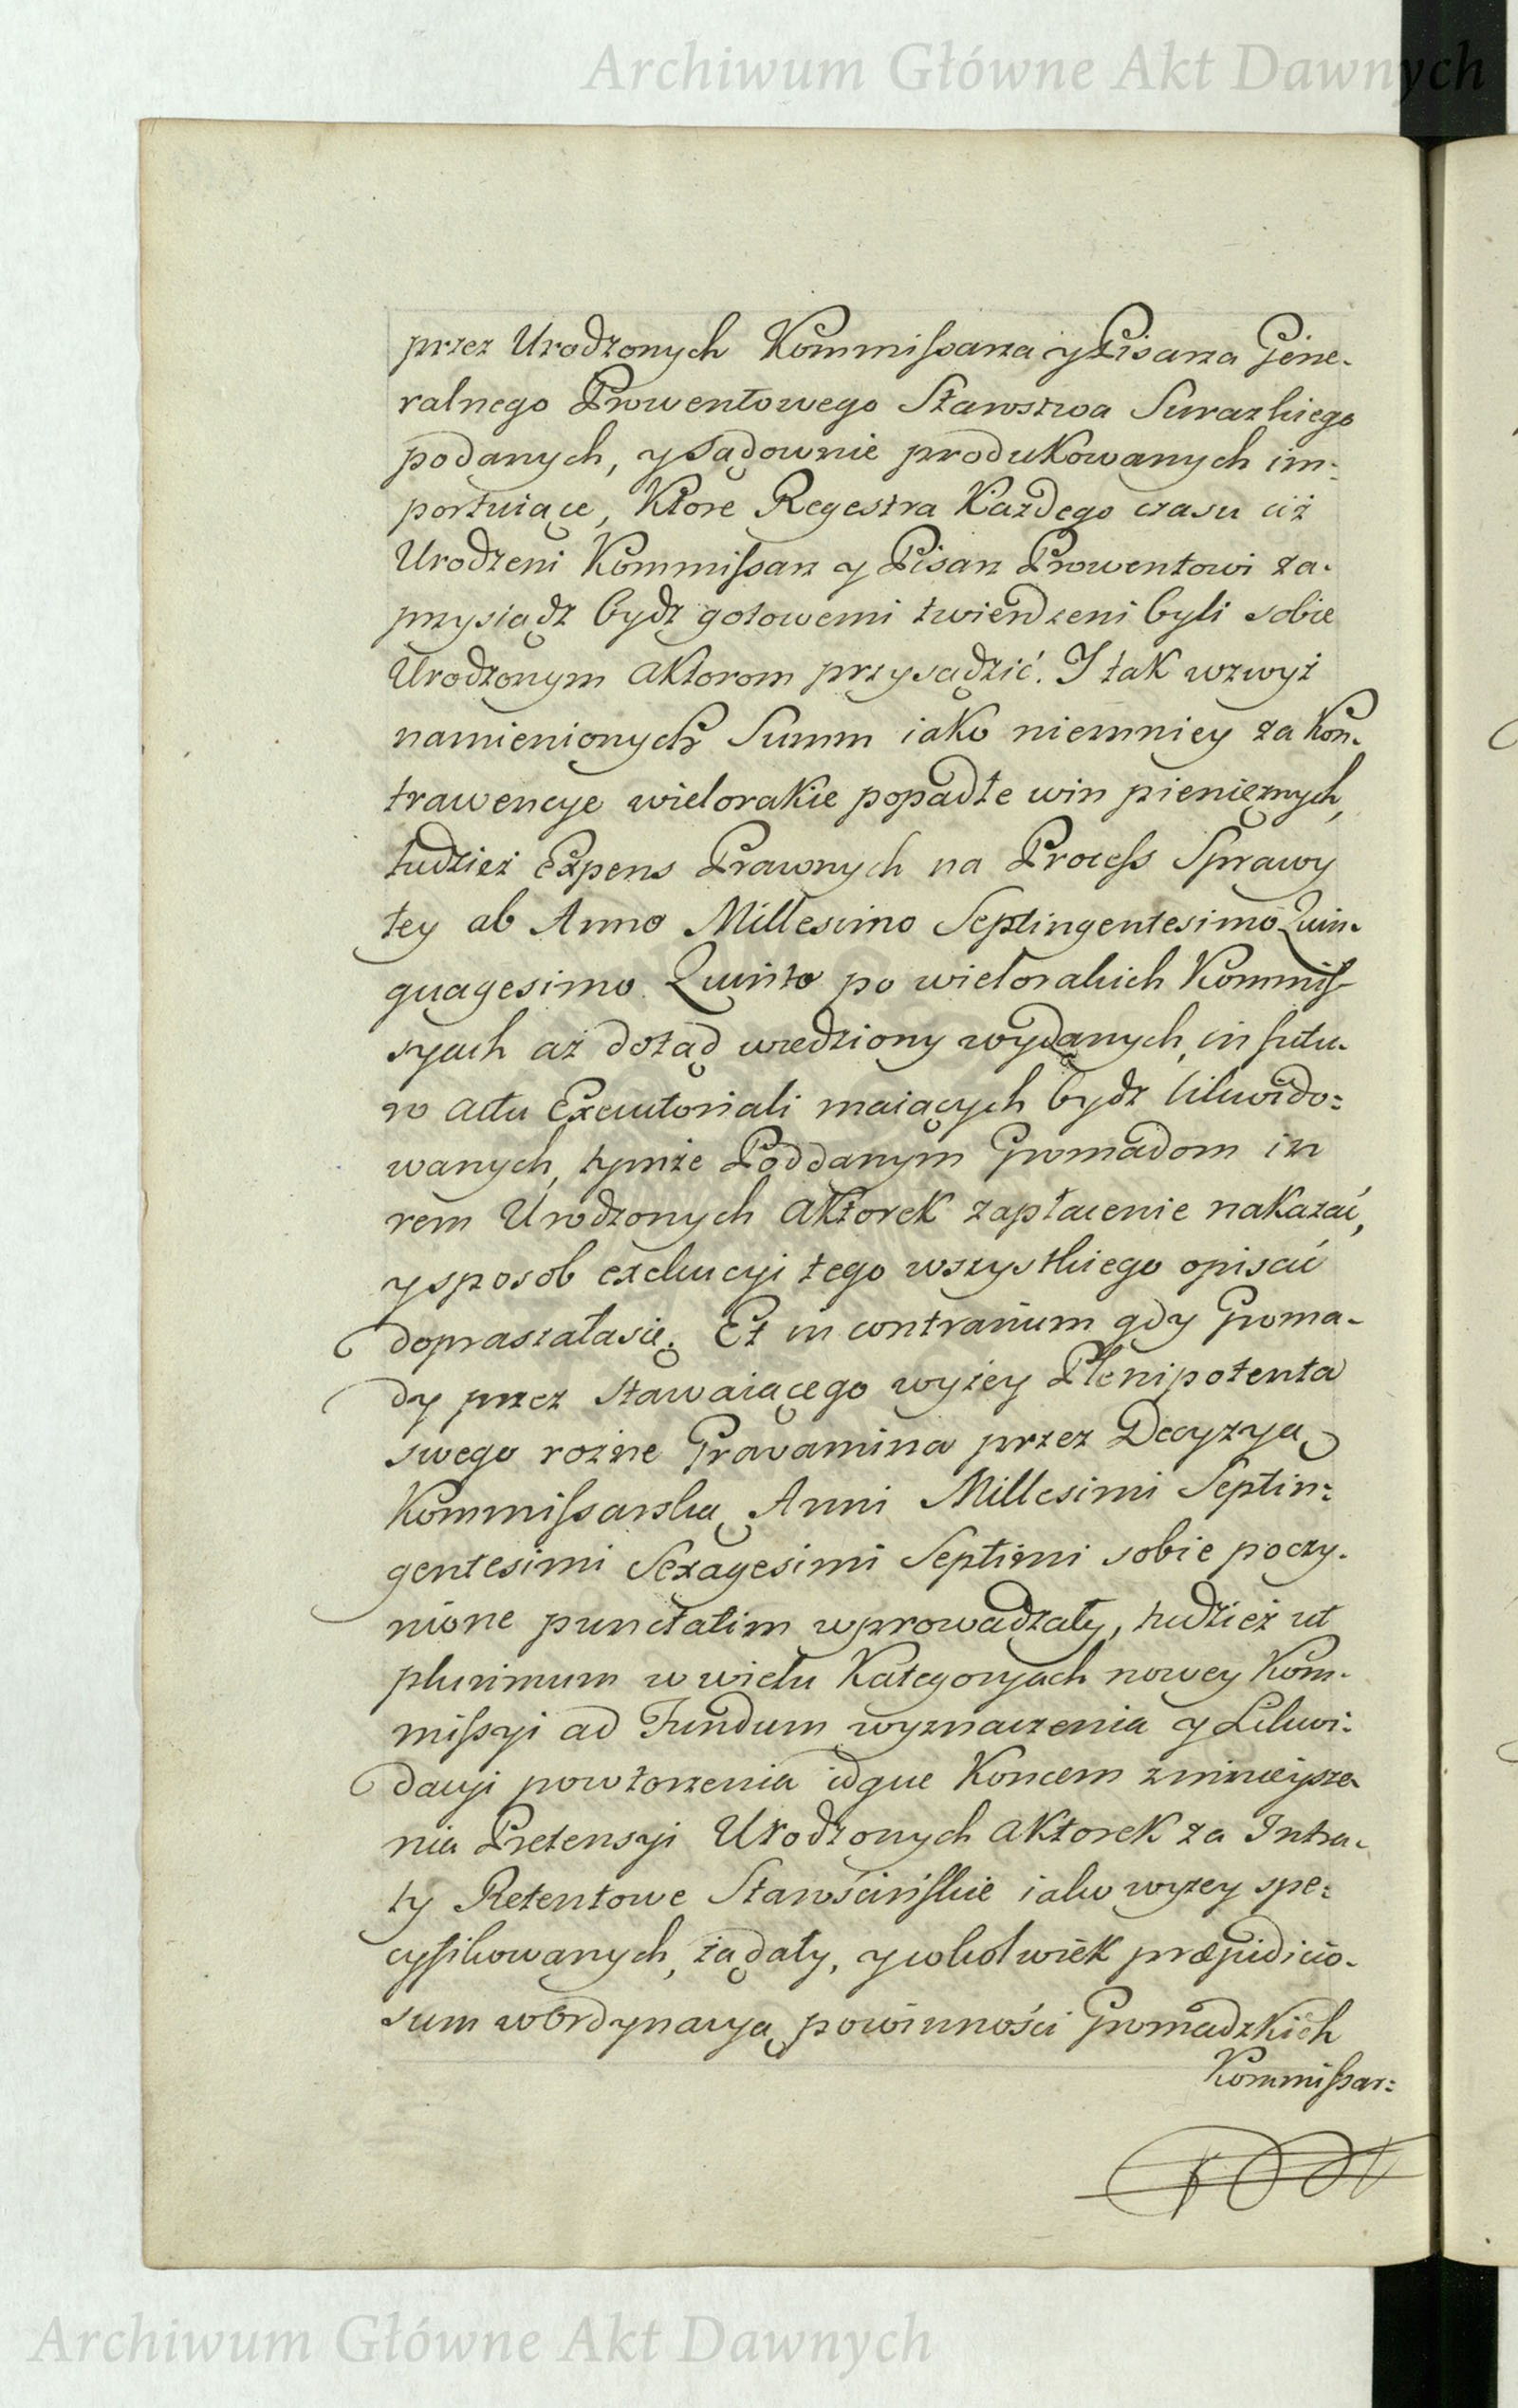 Archiwum Główne Akt Dawnych
przez Urodzonych Kommissarza y Pisarza Gene-
ralnego Prowentowego Starostwa Surazkiego
podanych, y Sądownie produkowanych im-
portuiące, Które Regestra Każdego czasu ciż
Urodzeni Kommissarz y Pisarz Prowentowi za-
przysiądz bydz gotowemi twierdzeni byli sobie
Urodzonym Aktorom przysądzić. I tak wzwyż
namienionych Summ iako niemniey za Kon-
trawencye wielorakie popadłe win pieniężnych,
tudzież Expens Prawnych na Process Sprawy
tey ab Anno Millesimo Septingentesimo Quin-
quagesimo Quinto po wielorakich Kommis-
syach aż dotąd wiedziony wydanych, in futu-
ro actu Executoriali maiących bydz likwido=
wanych, tymże Poddanym Gromadom in
rem Urodzonych Aktorek zapłacenie nakazać,
y sposob exekucyi tego wszystkiego opisać
dopraszałasię. Et in contrarium gdy Groma-
dy przez stawaiącego wyżey Plenipotenta
swego rożne Gravamina przez Decyzyą
Kommissarską Anni Millesimi Septin=
gentesimi Sexagesimi Septimi sobie poczy-
nione punctatim wprowadzały, tudzież ut
plurimum w wielu Kategoryach nowey Kom-
missyi ad Fundum wyznaczenia y Likwi=
dacyi powtorzenia idque Koncem zmnieysze-
nia Pretensyi Urodzonych Aktorek za Intra-
ty Retentowe Starościńskie iako wyzey spe=
cyfikowanych, żądały, y cokolwiek præjudicio-
sum w Ordynacyą powinności Gromadzkich
Kommissar=
Archiwum Główne Akt Dawnych